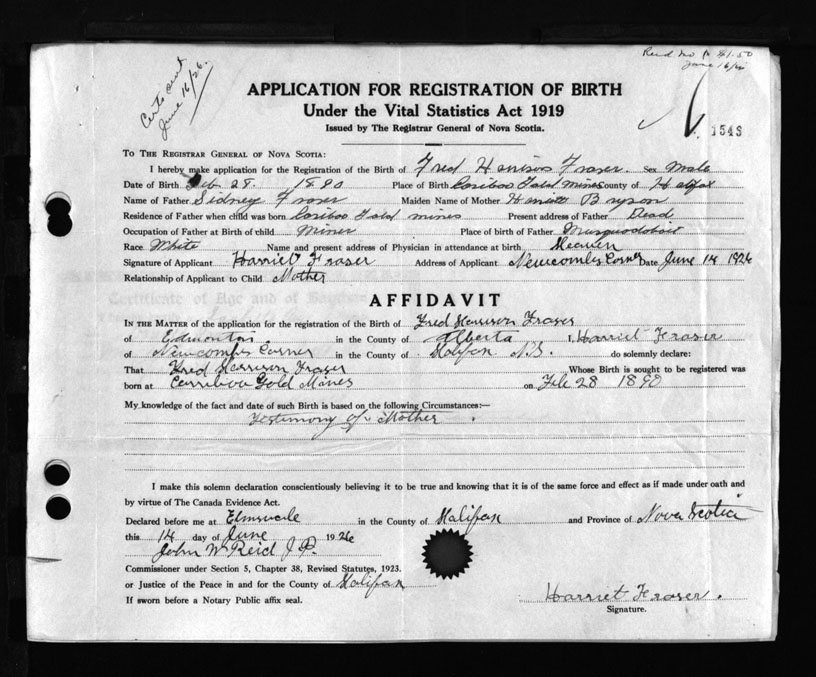 Certs sent
June 16/26.
June 16/26
APPLICATION FOR REGISTRATION OF BIRTH
Under the Vital Statistics Act 1919
Issued by The Registrar General of Nova Scotia.
1548
TO THE REGISTRAR GENERAL OF NOVA SCOTIA:
I hereby make application for the Registration of the Birth of Fred Harrison Fraser. Sex Male
Date of Birth Feb. 28. 1890 Place of Birth Cariboo Gold Mines County of Halifax
Name of Father Sidney Fraser Maiden Name of Mother Harriett Bryson
Residence of Father when child was born Cariboo Gold mines Present address of Father Dead
Occupation of Father at Birth of child Miner Place of birth of Father Musquodoboit
Race White Name and present address of Physician in attendance at birth
Signature of Applicant Harriet Fraser Address of Applicant Newcombs Corner Date June 14 1926
Relationship of Applicant to Child Mother
AFFIDAVIT
IN THE MATTER of the application for the registration of the Birth of Fred Harrison Fraser
of Edmonton in the County of Alberta I, Harriet Fraser
of Newcombs Corner in the County of Halifax N.S. do solemnly declare:
That Fred Harrison Fraser Whose Birth is sought to be registered was
born at Carribou Gold Mines on Feb 28 1890
My knowledge of the fact and date of such Birth is based on the following Circumstances:—
Testimony of Mother.
I make this solemn declaration conscientiously believing it to be true and knowing that it is of the same force and effect as if made under oath and
by virtue of The Canada Evidence Act.
Declared before me at Elmsvale in the County of Halifax and Province of Nova Scotia
this 14 day of June 1926
John W Reid J.P.
Commissioner under Section 5, Chapter 38, Revised Statutes, 1923.
or Justice of the Peace in and for the County of Halifax
If sworn before a Notary Public affix seal.
Harriet Fraser.
Signature.